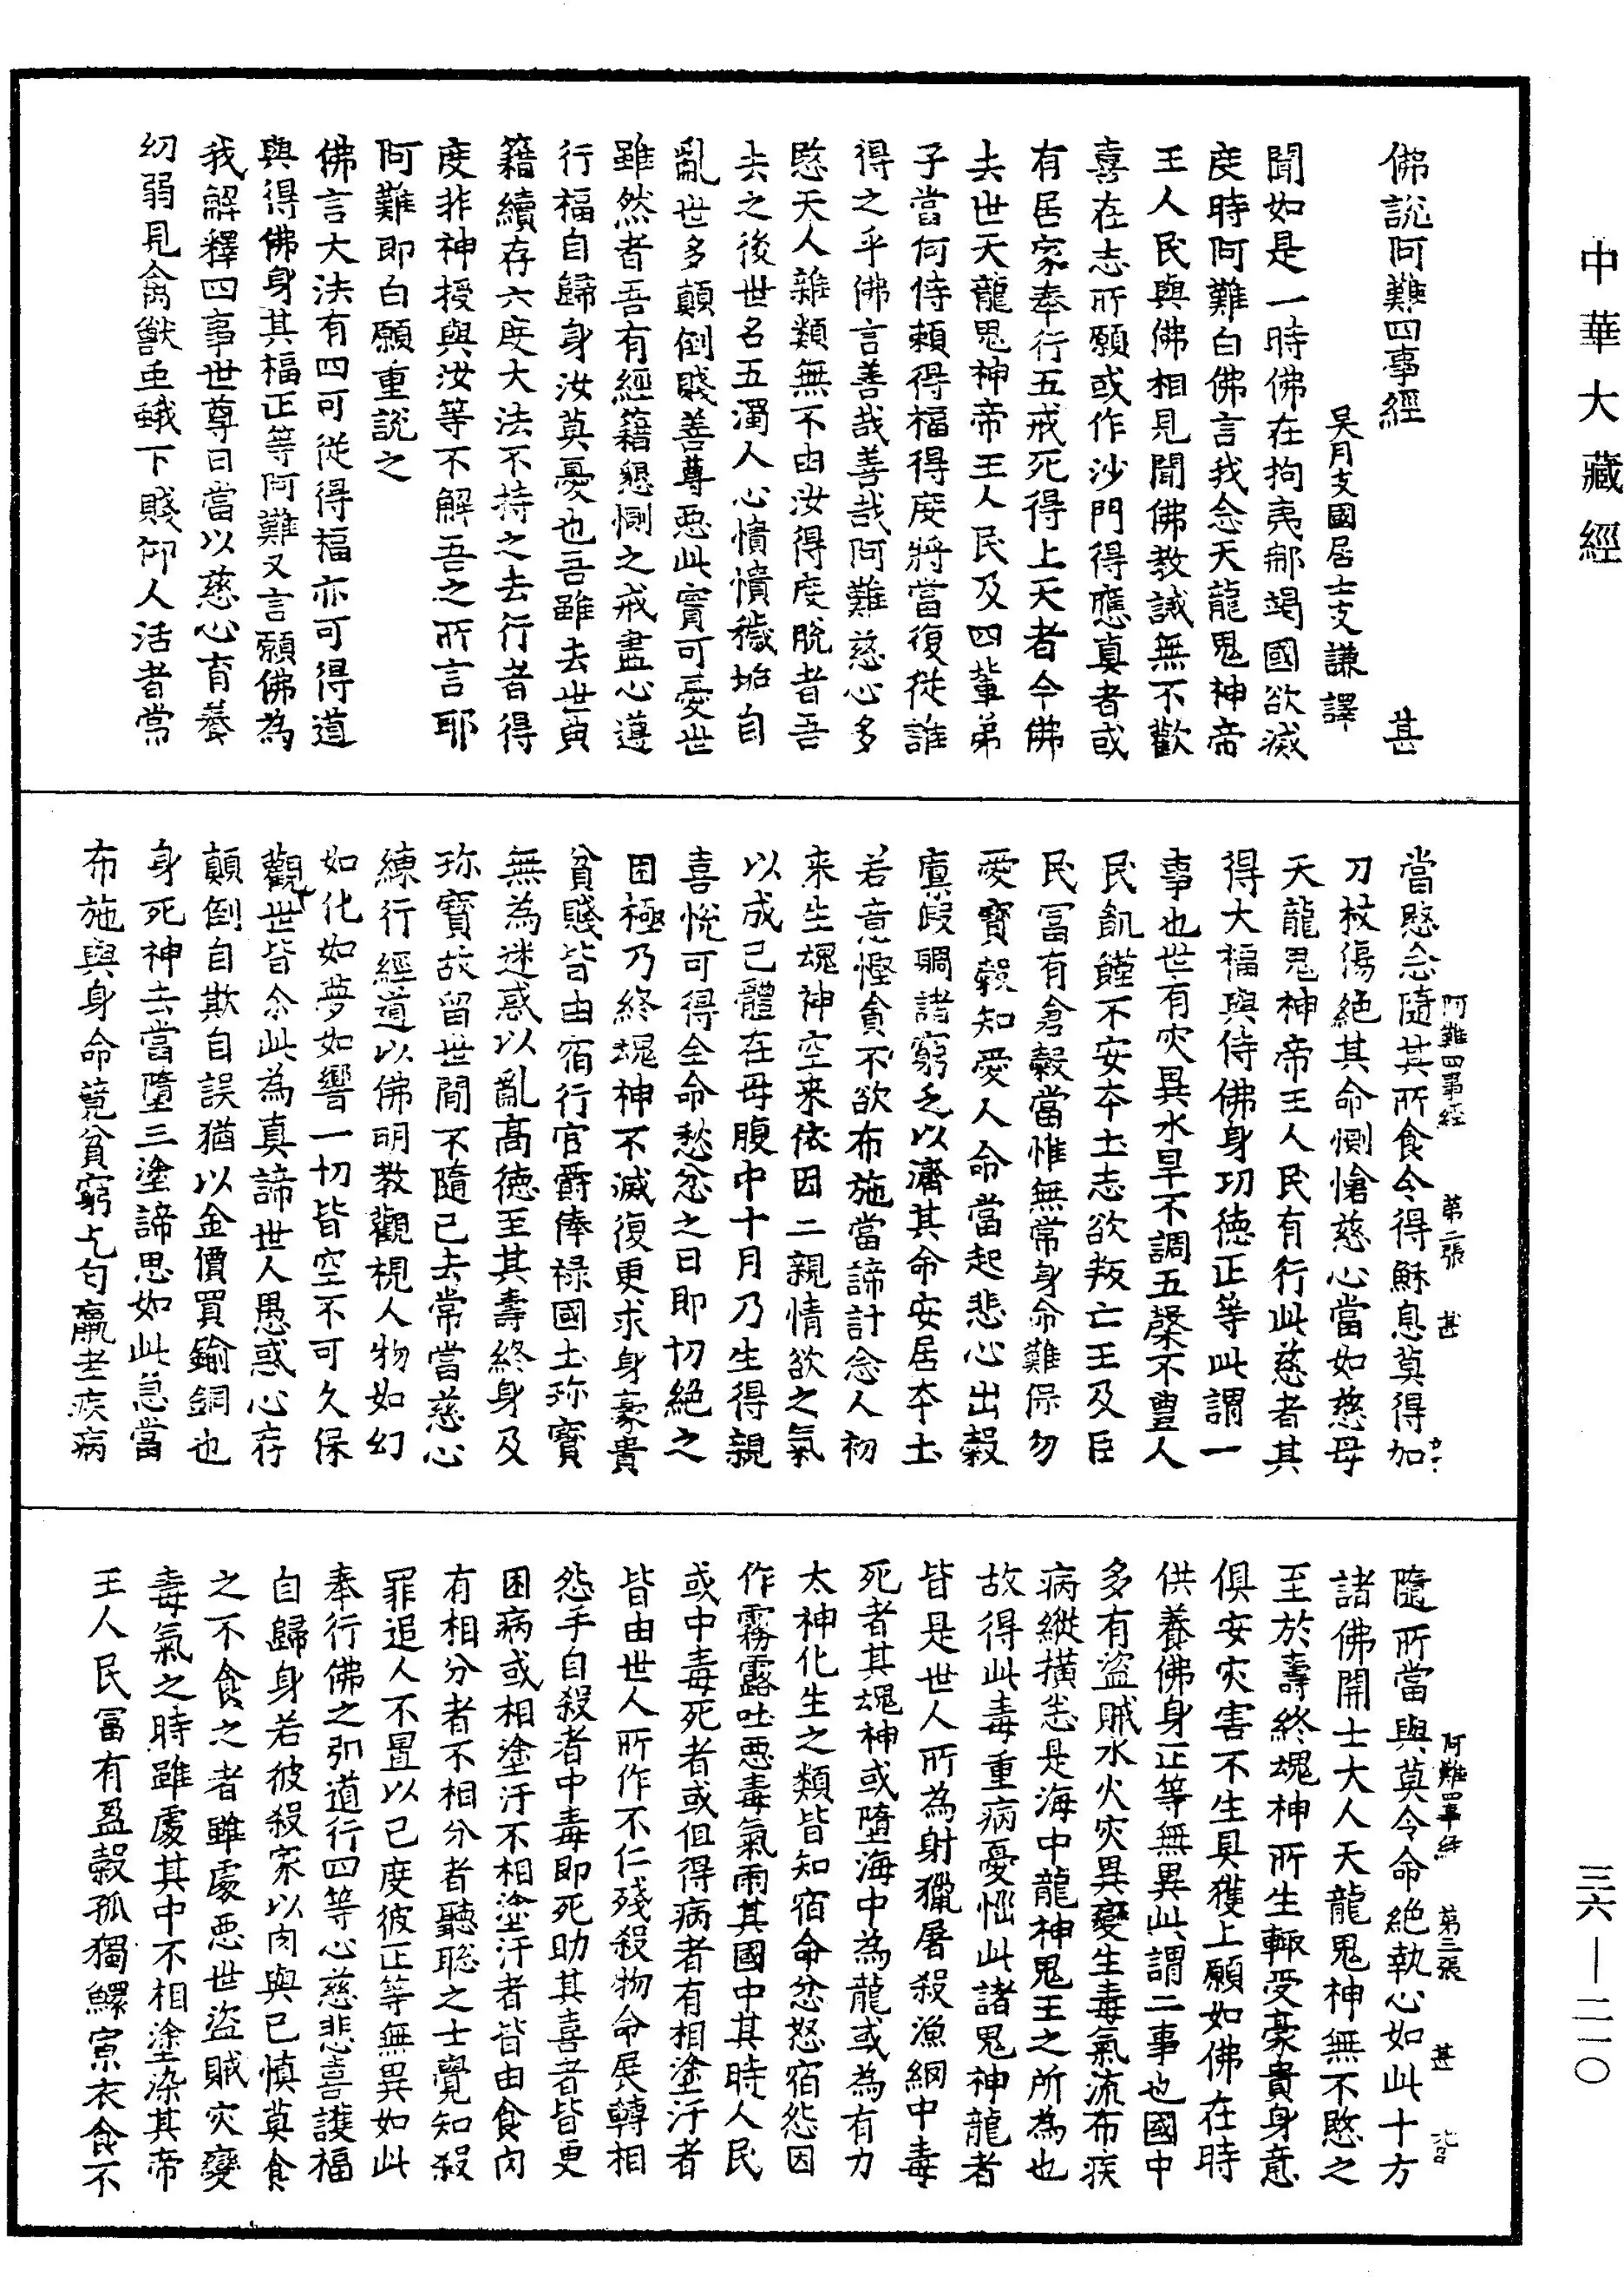 中華大藏經
佛說阿難四事經 甚
吳月支國居士支謙譯
聞如是一時佛在拘夷那竭國欲滅
度時阿難白佛言我念天龍鬼神帝
王人民與佛相見聞佛教誡無不歡
喜在志所願或作沙門得應真者或
有居家奉行五戒死得上天者今佛
去世天龍鬼神帝王人民及四輩弟
子當何侍賴得福得度將當復從誰
得之乎佛言善哉善哉阿難慈心多
愍天人雜類無不由汝得度脫者吾
去之後世名五濁人心憒憒穢垢自
亂世多顛倒賤善尊惡此實可憂世
雖然者吾有經籍懇惻之戒盡心遵
行福自歸身汝莫憂也吾雖去世典
籍續存六度大法不持之去行者得
度非神授與汝等不解吾之所言耶
阿難即白願重說之
佛言大法有四可從得福亦可得道
與得佛身其福正等阿難又言願佛為
我解釋四事世尊曰當以慈心育養
幼弱見禽獸虫蛾下賤仰人活者常
當愍念隨其所食令得穌息莫得加
刀杖傷絕其命惻愴慈心當如慈母
天龍鬼神帝王人民有行此慈者其
得大福與侍佛身功德正等此謂一
事也世有灾異水旱不調五穀不豐人
民飢饉不安本土志欲叛亡王及臣
民冨有倉穀當惟無常身命難保勿
愛寶穀知愛人命當起悲心出穀
廩假賙諸窮乏以濟其命安居本土
若意慳貪不欲布施當諦計念人初
来生魂神空来依因二親情欲之氣
以成己體在母腹中十月乃生得親
喜悅可得全命愁忿之日即切絕之
困極乃終魂神不滅復更求身豪貴
貧賤皆由宿行官爵俸祿國土珎寶
無為迷惑以亂高德至其壽終身及
珎寶故留世間不隨己去常當慈心
練行經道以佛明教觀視人物如幻
如化如夢如響一切皆空不可久保
觀世皆介此為真諦世人愚惑心存
顛倒自欺自誤猶以金價買鍮銅也
身死神去當墮三塗諦思如此急當
布施與身命竟貧窮乞匄羸老疾病
阿難四事經 第二張 甚
隨所當與莫令命絕執心如此十方
諸佛開士大人天龍鬼神無不愍之
至於壽終魂神所生輙受豪貴身意
俱安灾害不生具獲上願如佛在時
供養佛身正等無異此謂二事也國中
多有盜賊水火灾異變生毒氣流布疾
病縱橫恙是海中龍神鬼王之所為也
故得此毒重病憂惱此諸鬼神龍者
皆是世人所為射獵屠殺漁網中毒
死者其魂神或墮海中為龍或為有力
太神化生之類皆知宿命忿怒宿怨因
作霧露吐惡毒氣雨其國中其時人民
或中毒死者或但得病者有相塗汙者
皆由世人所作不仁殘殺物命展轉相
怨手自殺者中毒即死助其喜者皆更
困病或相塗汙不相塗汙者皆由食肉
有相分者不相分者聽聡之士覺知殺
罪追人不置以己度彼正等無異如此
奉行佛之引道行四等心慈悲喜護福
自歸身若彼殺家以肉與己慎莫食
之不食之者雖處惡世盜賊灾變
毒氣之時雖處其中不相塗染其帝
王人民冨有盈穀孤獨鰥寡衣食不
阿難四事經 第三張 甚
三六—二一〇